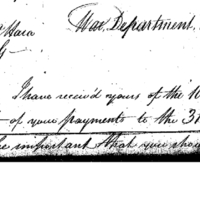 War Department,
I have receiv'd yours of the 10
of your payments to the 3
be important that you shou